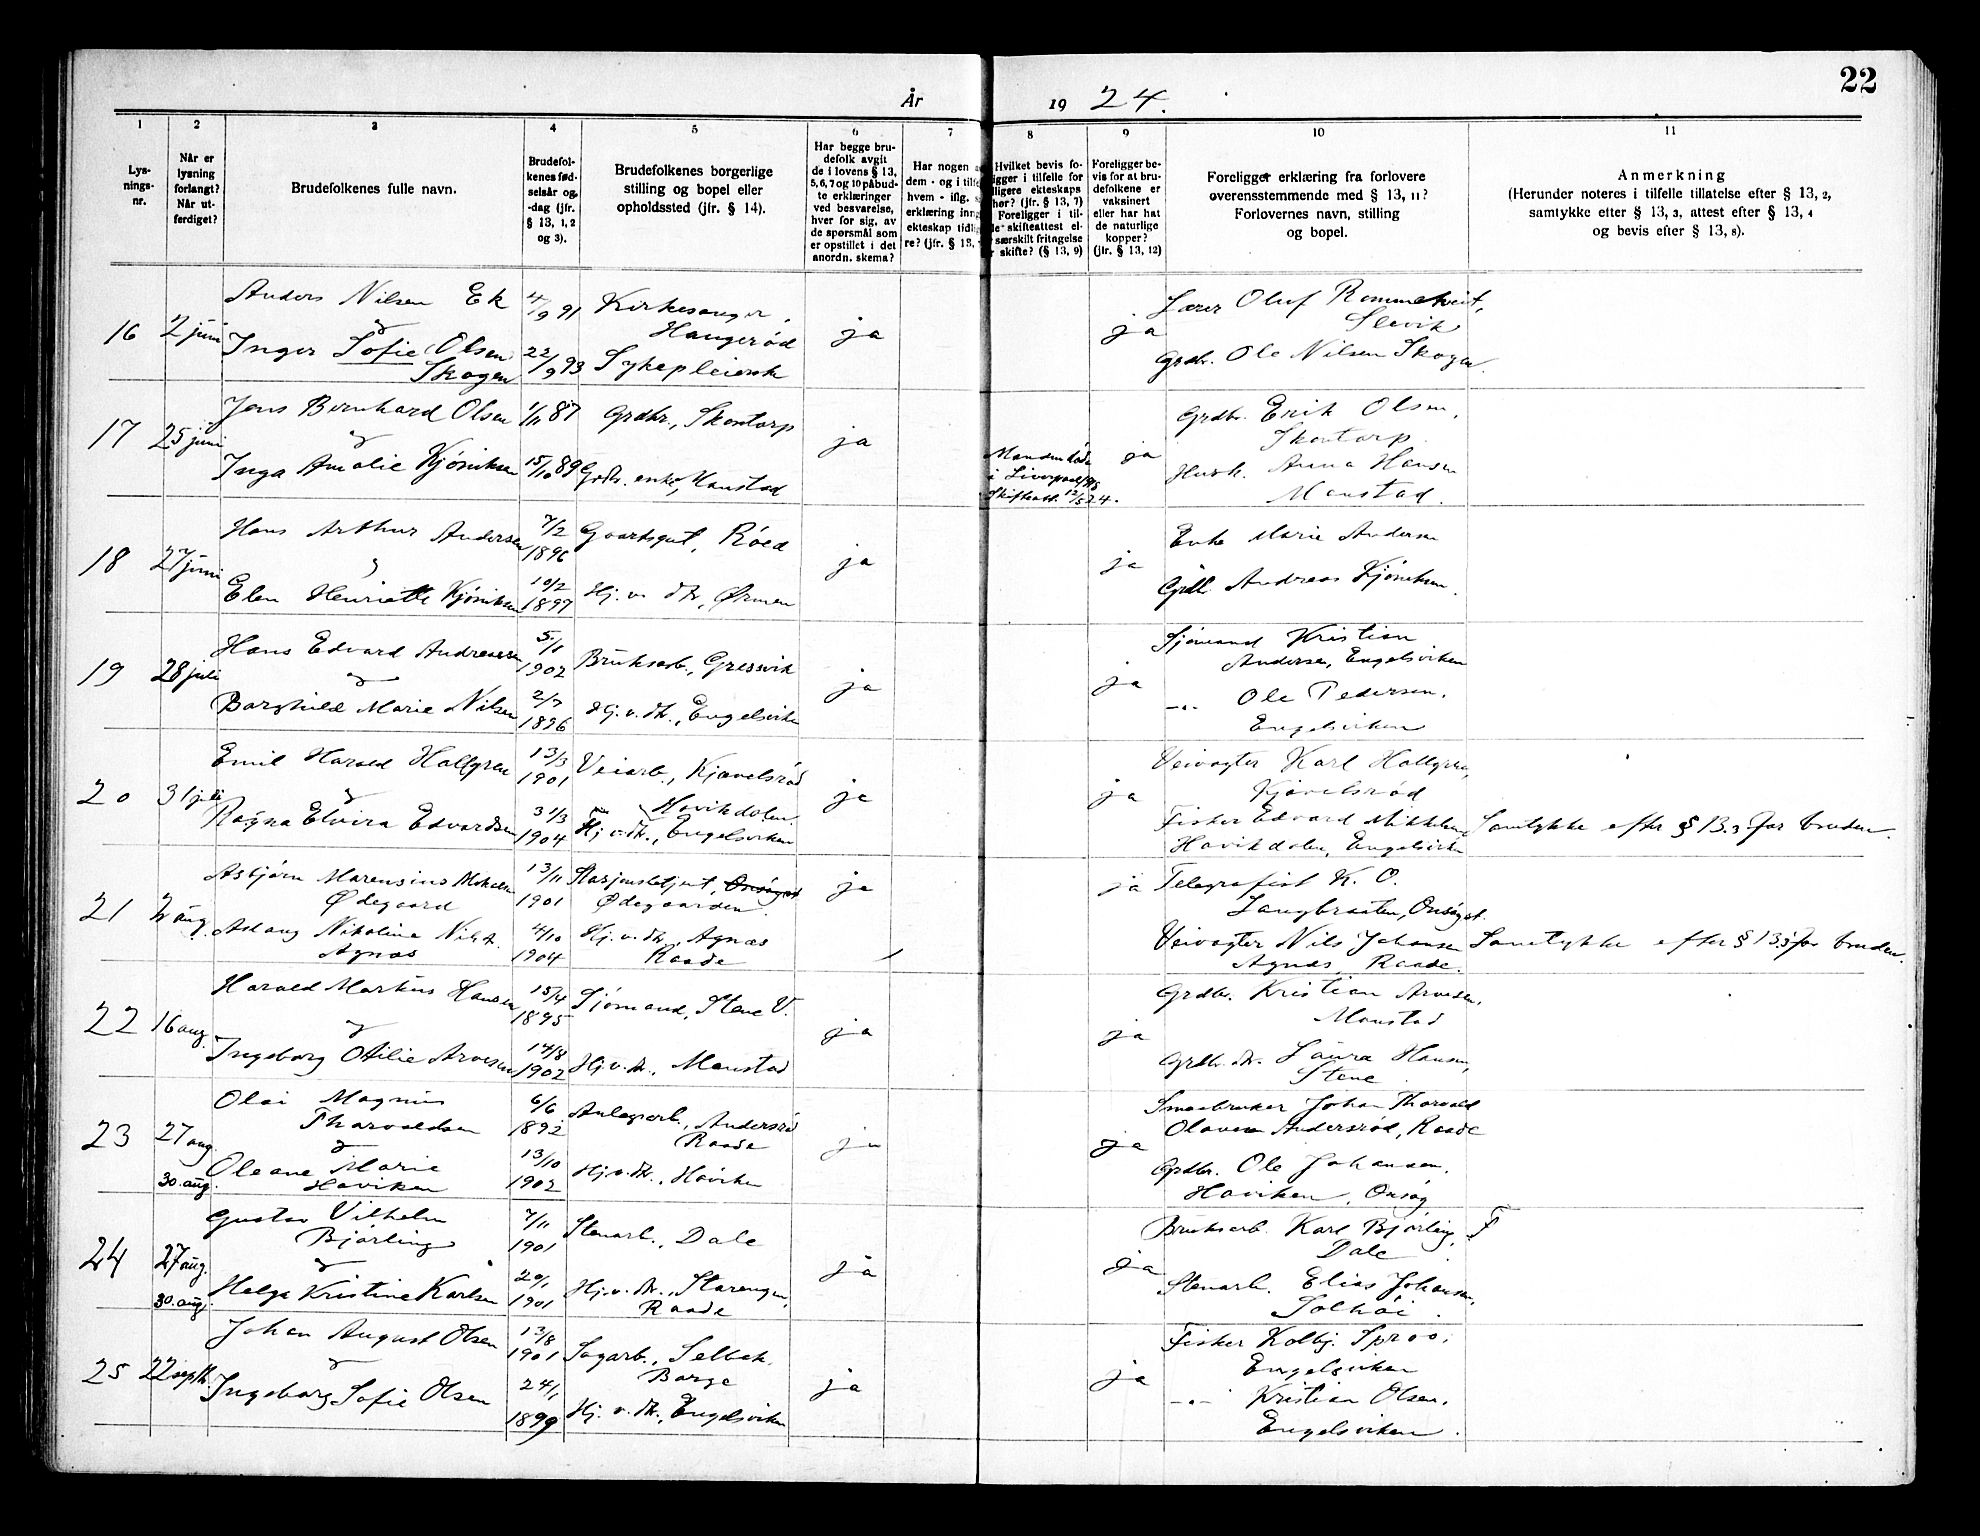 22
År 1924.
1 2 3 4 5 6 7 8 9 10 11
Lysningsnr.
Når er lysning forlangt? Når utferdiget?
Brudefolkenes fulle navn.
Brudefolkenes fødselsår og -dag (jfr. § 13, 1, 2 og 3).
Brudefolkenes borgerlige stilling og bopel eller opholdssted (jfr. § 14).
Har begge brudefolk avgit de i lovens § 13, 5, 6, 7 og 10 påbudte erklæringer ved besvarelse, hver for sig, av de spørsmål som er opstillet i det anordn. skema?
Har nogen
dem - og i tilf
hvem - iflg.
erklæring inng
ekteskap tidlig
re? (jfr. § 13,
Hvilket bevis fo-
igger i tilfelle for
ligere ekteskaps
hør? (jfr. § 13, 7)
Foreligger i til-
le skifteattest el-
særskilt fritagelse
skifte? (§ 13, 9)
Foreligger bevis for at brudefolkene er vaksinert eller har hat de naturlige kopper? (jfr. § 13, 12)
Foreligger erklæring fra forlovere overensstemmende med § 13, 11? Forlovernes navn, stilling og bopel.
Anmerkning
(Herunder noteres i tilfelle tillatelse efter § 13, 2,
samtykke efter § 13, 3, attest efter § 13, 4
og bevis efter § 13, 8).
Anders Nilsen Ek 4/9 91 Kirkesanger, Lærer Oluf Rommetveit,
16 2 juni og Haugerød ja ja Slevik
Inger Sofie (Olsen) 22/9 93 Sykepleierske Grdbr. Ole Nilsen Skogen
Skogen
Jens Bernhard Olsen 1/11 87 Grdbr., Skontorp Grdbr. Erik Olsen,
17 25 juni og ja ja Skontorp.
Inga Amalie Kjøniksen 15/10 89 enke, Manstad Manden døde i Liverpool Skifteatt. 12/5 24. Anna Hansen
Manstad.
Hans Arthur Andersen 7/2 1896 Gaardsgut, Røed Enke Marie Andersen
18 27 juni og ja ja
Elen Henriette Kjøniksen 10/2 1897 Hj. v. dtr., Ørmen Andreas Kjøniksen.
Hans Edvard Andreassen 5/1 1902 Bruksarb., Gressvik Sjømand Kristian
Andersen, Engelsviken
19 28 juli og ja ja
Borghild Marie Nilsen 2/7 1896 Hj. v. dtr., Engelsviken -"- Ole Pedersen,
Engelsviken
Emil Harald Hallgren 13/3 1901 Veiarb., Kjavelsrød Veivogter Karl Hallgren,
20 31 juli og ja ja Kjøvelsrød
Ragna Elvira Edvardsen 31/3 1904 Hj. v. dtr., Havikdalen, Engelsviken Fisker Edvard Mikkelsen Samtykke efter § 13.3 for bruden
Havikdalen, Engelsviken
Asbjørn Marensius Ødegaard 13/11 1901 Stasjonsbetjent, Onsøy Ødegaarden. ja ja Telegrafist K. O.
Langbraaten, Onsøy st.
21 2 aug.
Aslaug Nikoline Nilsdtr. Agnæs 4/10 1904 Hj. v. dtr., Agnæs Raade Veivogter Nils Johansen Samtykke efter § 13.3 for bruden.
Agnæs, Raade.
Harald Markus Hansen 15/4 1895 Sjømand, Stene V. Grdbr. Kristian Arvesen,
Manstad
22 16 aug. og ja ja
Ingeborg Otilie Arvesen 14/8 1902 Hj. v. dtr., Manstad Grdbr. dtr. Laura Hansen,
Stene.
Olai Magnus Thorvaldsen 6/6 1892 Anlegsarb., Andersrød Raade Smaabruker Johan Thorvald
Olavesen Andersrød, Raade
23 27 aug. og ja ja
30. aug. Oleane Marie Haviken 13/10 1902 Hj. v. dtr., Haviken Grdbr. Ole Johansen,
Haviken, Onsøy
Gustav Vilhelm Bjørling 7/11 1901 Stenarb., Dale Bruksarb. Karl Bjørling, F
Dale
24 27 aug. og ja ja
30. aug. Helga Kristine Karlsen 20/1 1901 Hj. v. dtr., Starengen, Raade Stenarb. Elias Johansen,
Solhøi
Johan August Olsen 13/8 1901 Sagarb., Selbak, Borge Fisker Kolbj. Sproo,
Engelsviken
25 22 sept. og ja ja
Ingeborg Sofie Olsen 24/1 1899 Hj. v. dtr., Engelsviken -"- Kristian Olsen,
Engelsviken.